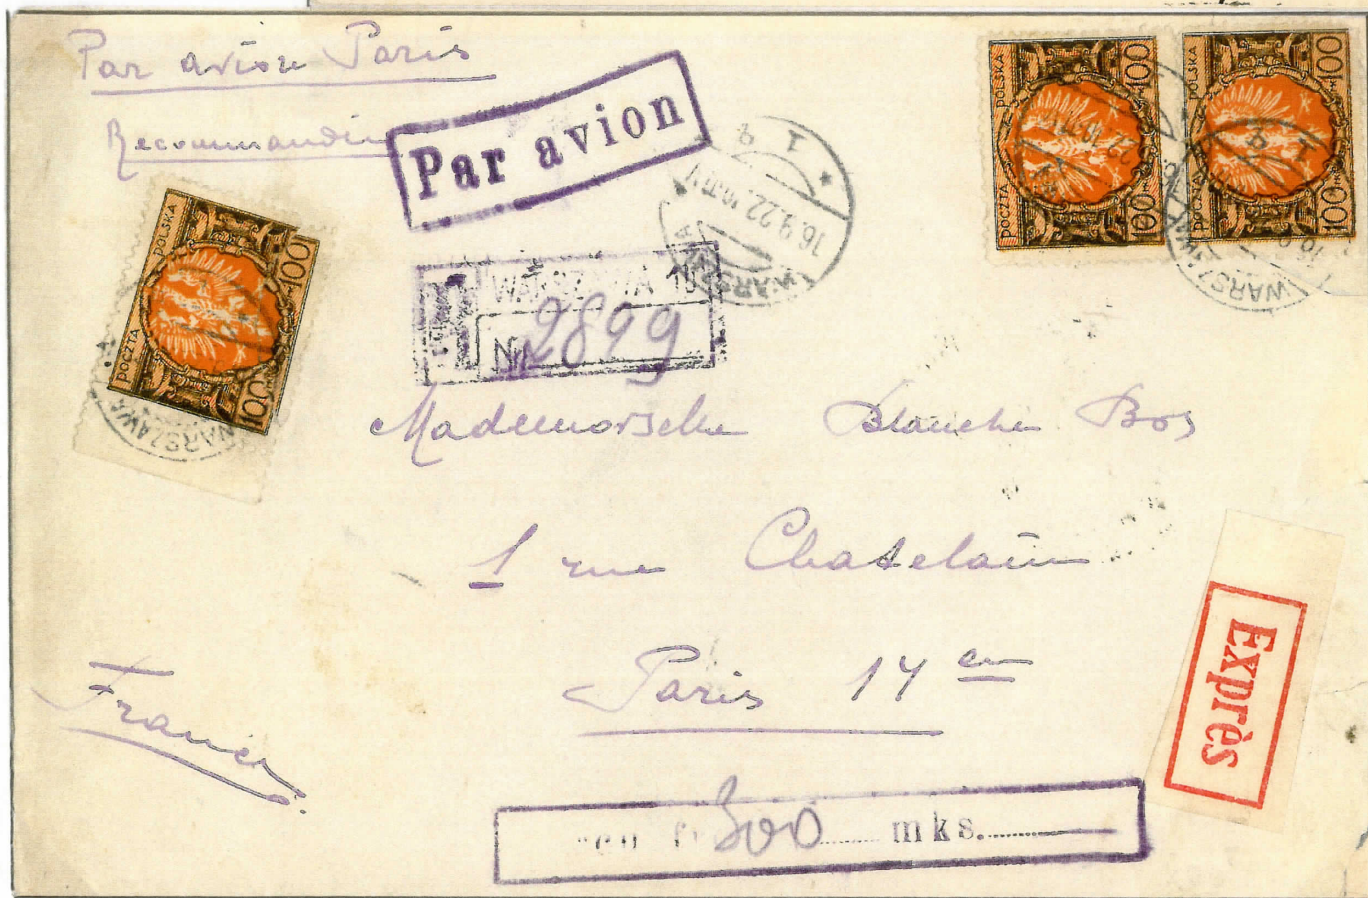 Par avion Paris
Recommandée
Par avion
POCZTA POLSKA
100 100
POCZTA POLSKA
100 100
POCZTA POLSKA
100 100
WARSZAWA 1
16.9.22
WARSZAWA
WARSZAWA
WARSZAWA 10
Nr 2899
Mademoiselle Blanche Bos
1 rue Chatelain
Paris 14 em
France
Exprès
300 mks.